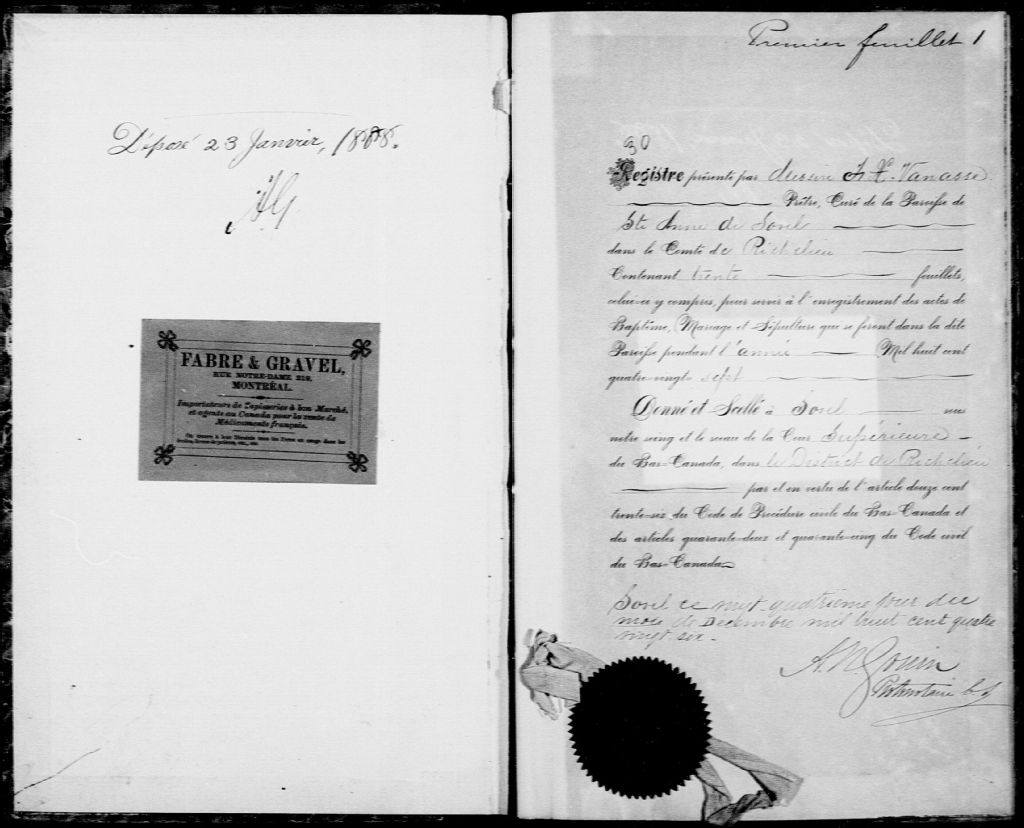 Déposé 23 Janvier, 1888.
AG
FABRE & GRAVEL,
RUE NOTRE-DAME 219,
MONTRÉAL.
Importateurs de Tapisseries à bon Marché,
et agents au Canada pour la vente de
Médicaments français.
Premier feuillet 1
30
Registre présenté par Messire F. X. Vanasse
Prêtre, Curé de la Paroisse de
Ste Anne de Sorel
dans le Comté de Richelieu
Contenant trente feuillets,
celui-ci y compris, pour servir à l'enregistrement des actes de
Baptême, Mariage et Sépulture que se feront dans la dite
Paroisse pendant l'année Mil huit cent
quatre-vingt- sept
Donné et Scellé à Sorel sous
notre seing et le sceau de la Cour Supérieure
du Bas-Canada, dans le District de Richelieu
par et en vertu de l'article douze cent
trente-six du Code de Procédure civile du Bas-Canada et
des articles quarante-deux et quarante-cinq du Code civil
du Bas-Canada.
Sorel ce vingt quatrième jour du
mois de Decembre mil huit cent quatre
vingt six.
A. N. Gouin
Protonotaire C. S.